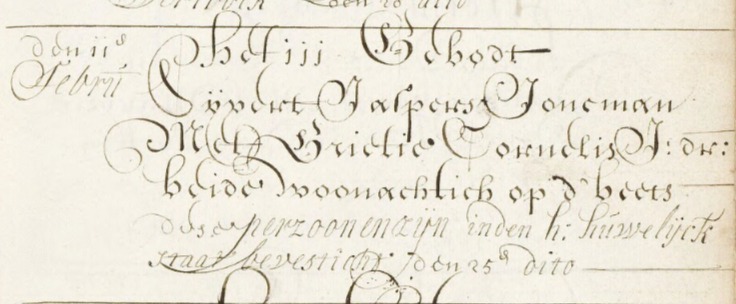 den 11e Het iii Gebodt
Febru
Syvert Jaspers Joncman
Met Grietie Cornelis J: dr:
beide woonachtich op d' beets
dese perzoonen zijn inden h: huwelijck
staat bevesticht den 25e dito